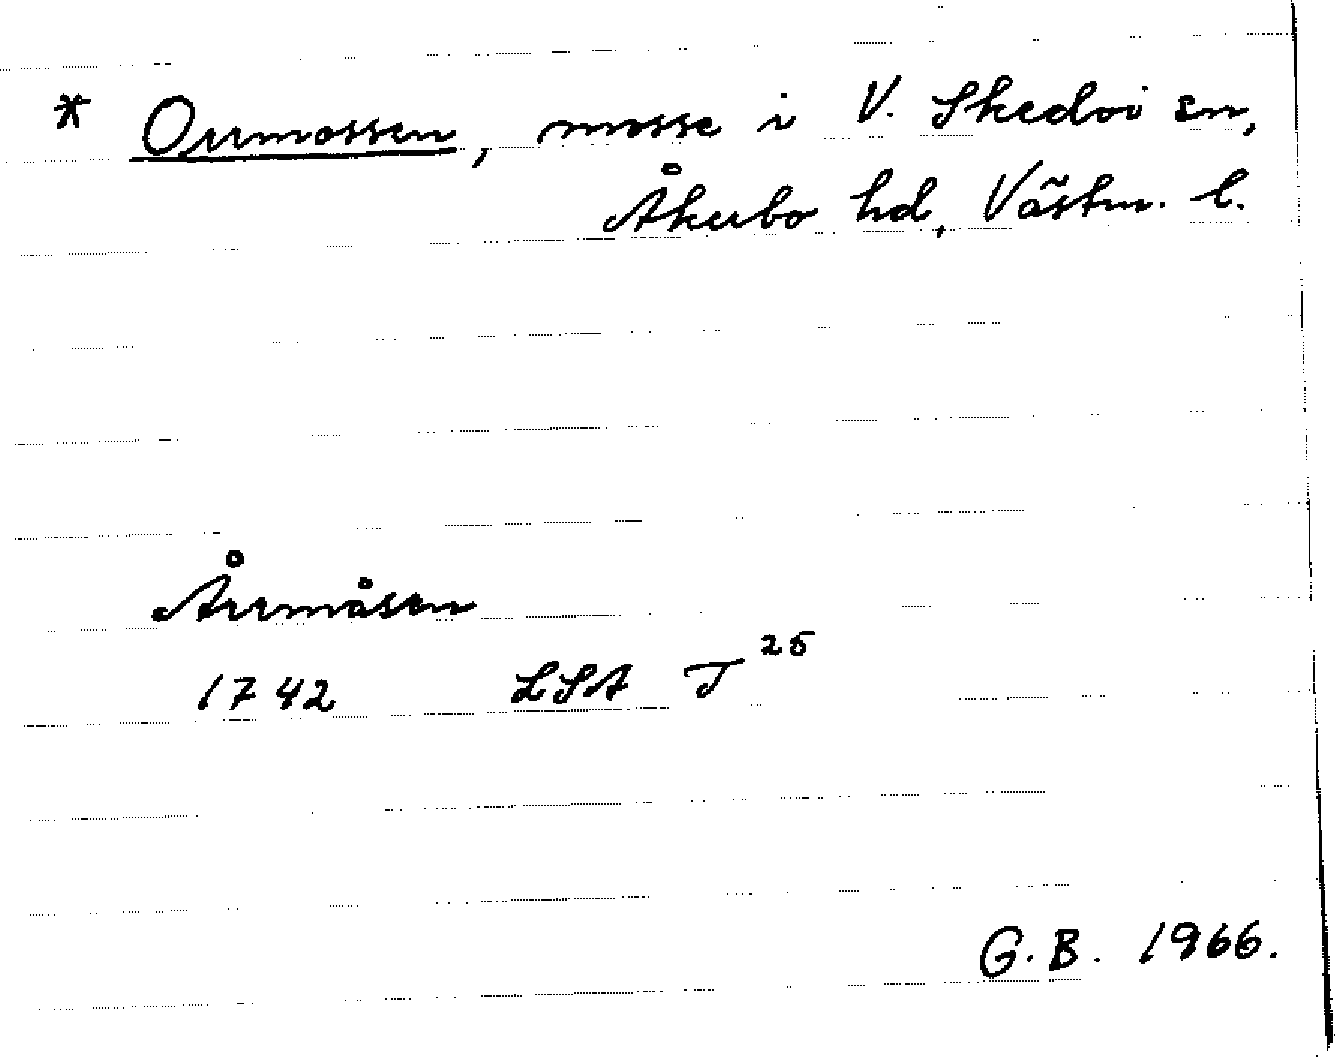 * Orrmossen, mosse i V. Skedvi sn,
Åkerbo hd, Västm. l.
Årrmåsen
1742 LSA T 25
G. B. 1966.